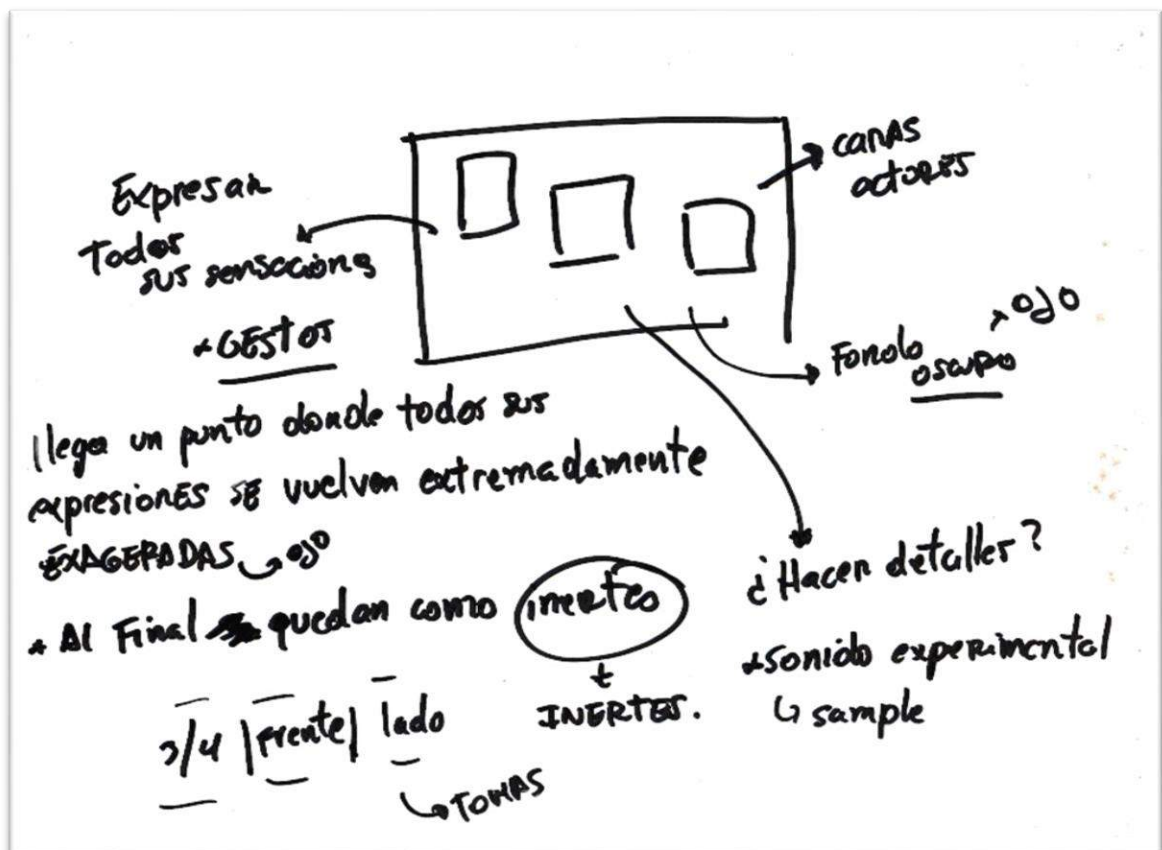 Expresar
Todos
sus sensaciones
* GESTOS
caras
actores
Fondo
oscuro
ojo
llega un punto donde todos sus
expresiones se vuelven extremadamente
EXAGERADAS ojo
* Al Final quedan como inertes
INERTES.
¿Hacen detalles?
* sonido experimental
sample
3/4 |frente| lado
TOMAS